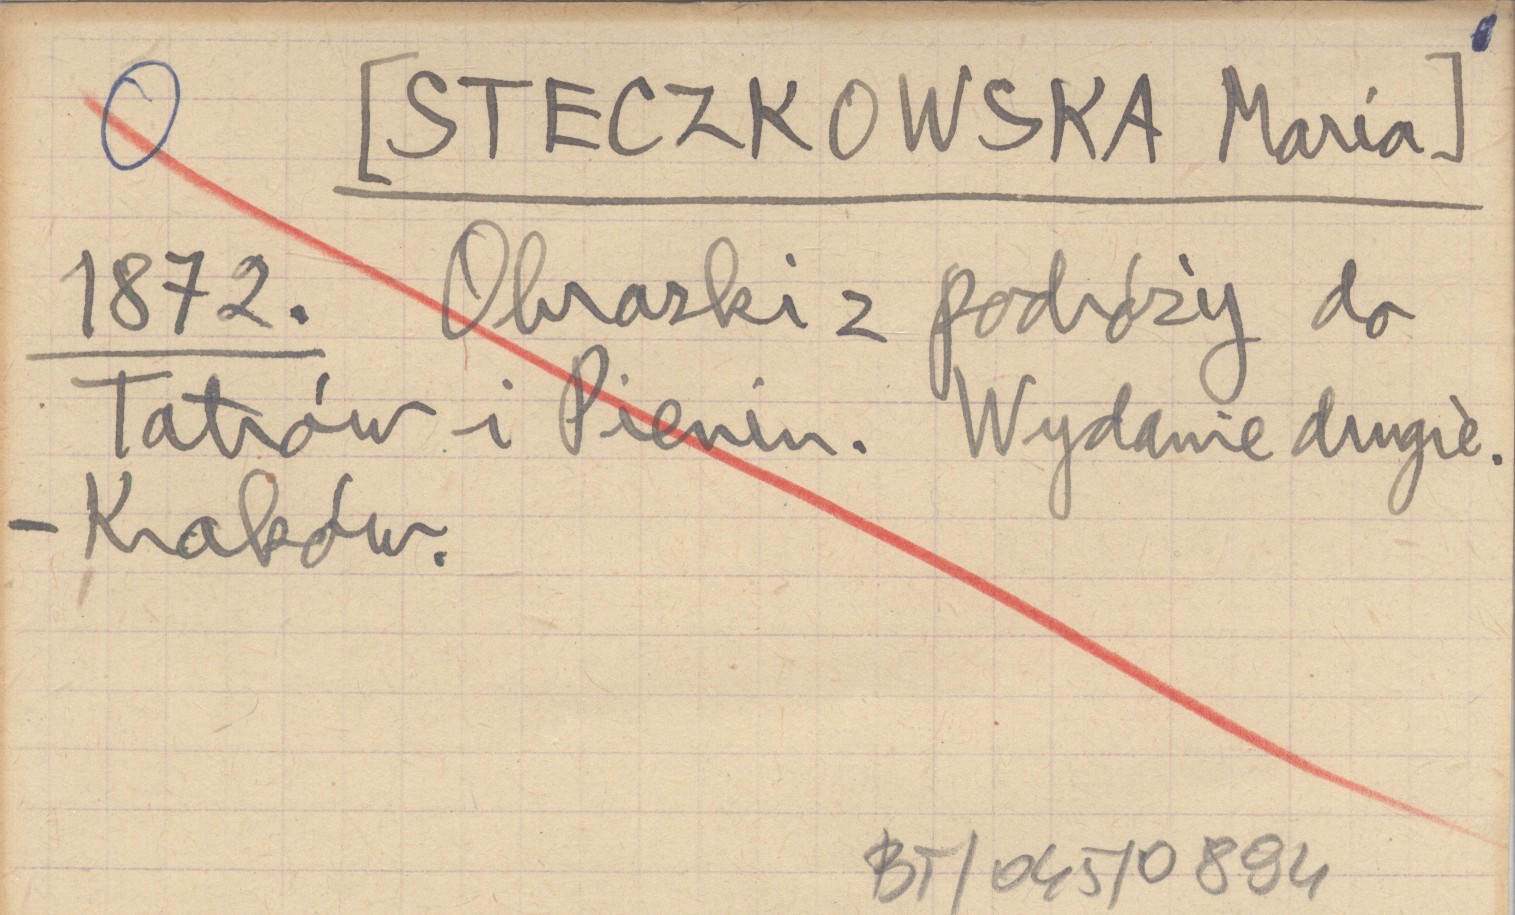 [STECZKOWSKA Maria]
1872. Obrazki z podróży do
Tatrów i Pienin. Wydanie drugie.
- Kraków.
BT/045/0894